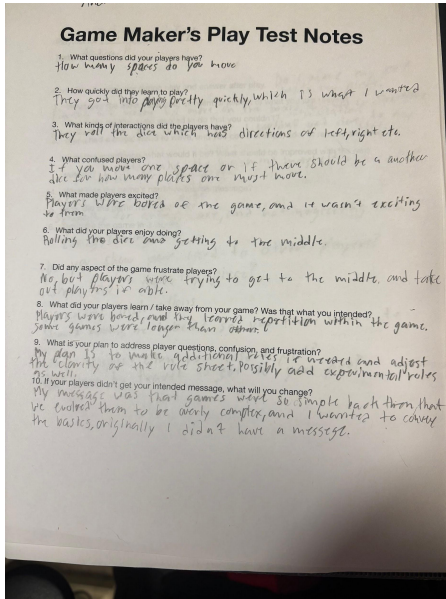 Time
Game Maker's Play Test Notes
1. What questions did your players have?
How many spaces do you move
2. How quickly did they learn to play?
They got into playing pretty quickly, which is what I wanted
3. What kinds of interactions did the players have?
They roll the dice which has directions of left, right etc.
4. What confused players?
If you move one space or if there should be a another
dice for how many places one must move.
5. What made players excited?
Players were bored of the game, and it wasn't exciting
to them
6. What did your players enjoy doing?
Rolling the dice and getting to the middle.
7. Did any aspect of the game frustrate players?
No, but players were trying to get to the middle, and take
out players if able.
8. What did your players learn / take away from your game? Was that what you intended?
Players were bored, and they learned repetition within the game.
Some games were longer than others.
9. What is your plan to address player questions, confusion, and frustration?
My plan is to make additional rules if needed and adjust
the clarity of the rule sheet. Possibly add experimental rules
as well.
10. If your players didn't get your intended message, what will you change?
My message was that games were so simple back then, that
we evolved them to be overly complex, and I wanted to convey
the basics, originally I didn't have a message.